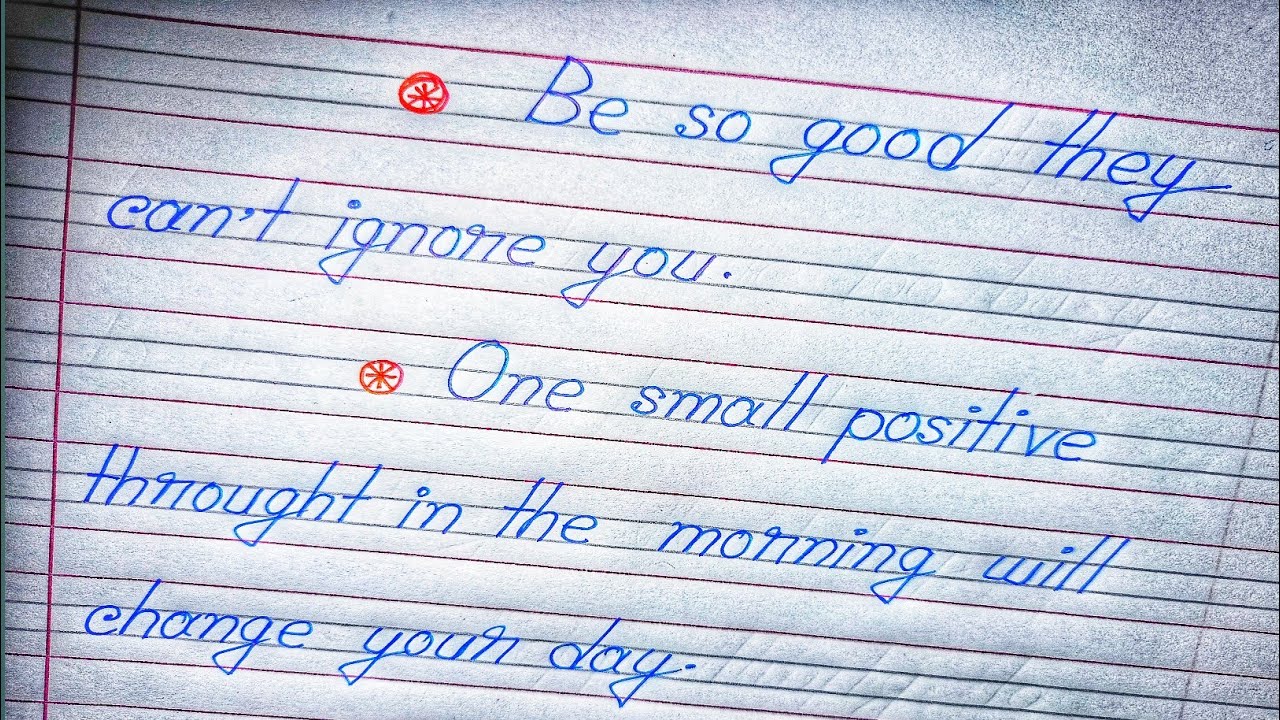 Be so good they
can't ignore you.
One small positive
throught in the morning will
change your day.